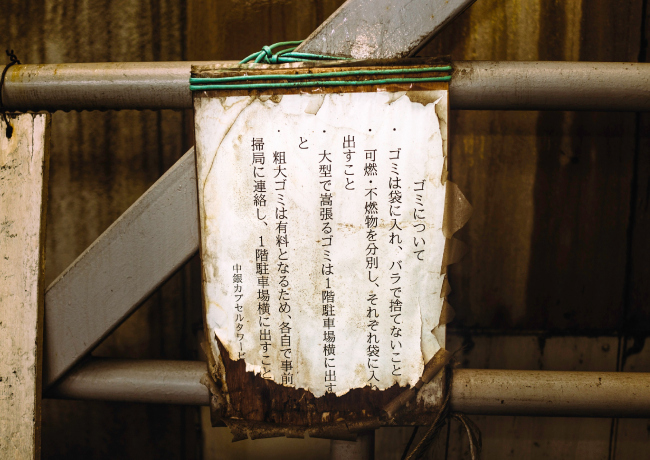 ゴミについて
・ゴミは袋に入れ、バラで捨てないこと
・可燃・不燃物を分別し、それぞれ袋に入
出すこと
・大型で嵩張るゴミは1階駐車場横に出す
と
・粗大ゴミは有料となるため、各自で事前
掃局に連絡し、1階駐車場横に出すこと
中銀カプセルタワービ